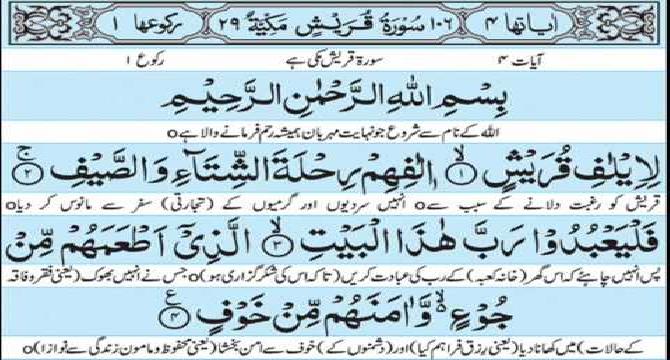 اٰیاتها ۴ ۱۰۶ سُوْرَةُ قُرَیْشٍ مَکِّیَّةٌ ۲۹ رکوعها ۱
آیات ۴ سورۃ قریش مکی ہے رکوع ۱
بِسْمِ اللّٰهِ الرَّحْمٰنِ الرَّحِیْمِ
اللہ کے نام سے شروع جو نہایت مہربان ہمیشہ رحم فرمانے والا ہے o
لِاِیْلٰفِ قُرَیْشٍ ۙ۝۱ اٖلٰفِهِمْ رِحْلَةَ الشِّتَآءِ وَ الصَّیْفِ ۚ۝۲
قریش کو رغبت دلانے کے سبب سے o انہیں سردیوں اور گرمیوں کے (تجارتی) سفر سے مانوس کر دیا o
فَلْیَعْبُدُوْا رَبَّ هٰذَا الْبَیْتِ ۙ۝۳ الَّذِیْۤ اَطْعَمَهُمْ مِّنْ
پس انہیں چاہئے کہ اس گھر (خانہ کعبہ) کے رب کی عبادت کریں (تاکہ اس کی شکر گزاری ہو) o جس نے انہیں بھوک (یعنی فقر و فاقہ
جُوْعٍ ۙ۬ وَّ اٰمَنَهُمْ مِّنْ خَوْفٍ ۝۴ ع
کے حالات) میں کھانا دیا (یعنی رزق فراہم کیا) اور (دشمنوں کے) خوف سے امن بخشا (یعنی محفوظ و مامون زندگی سے نوازا) o